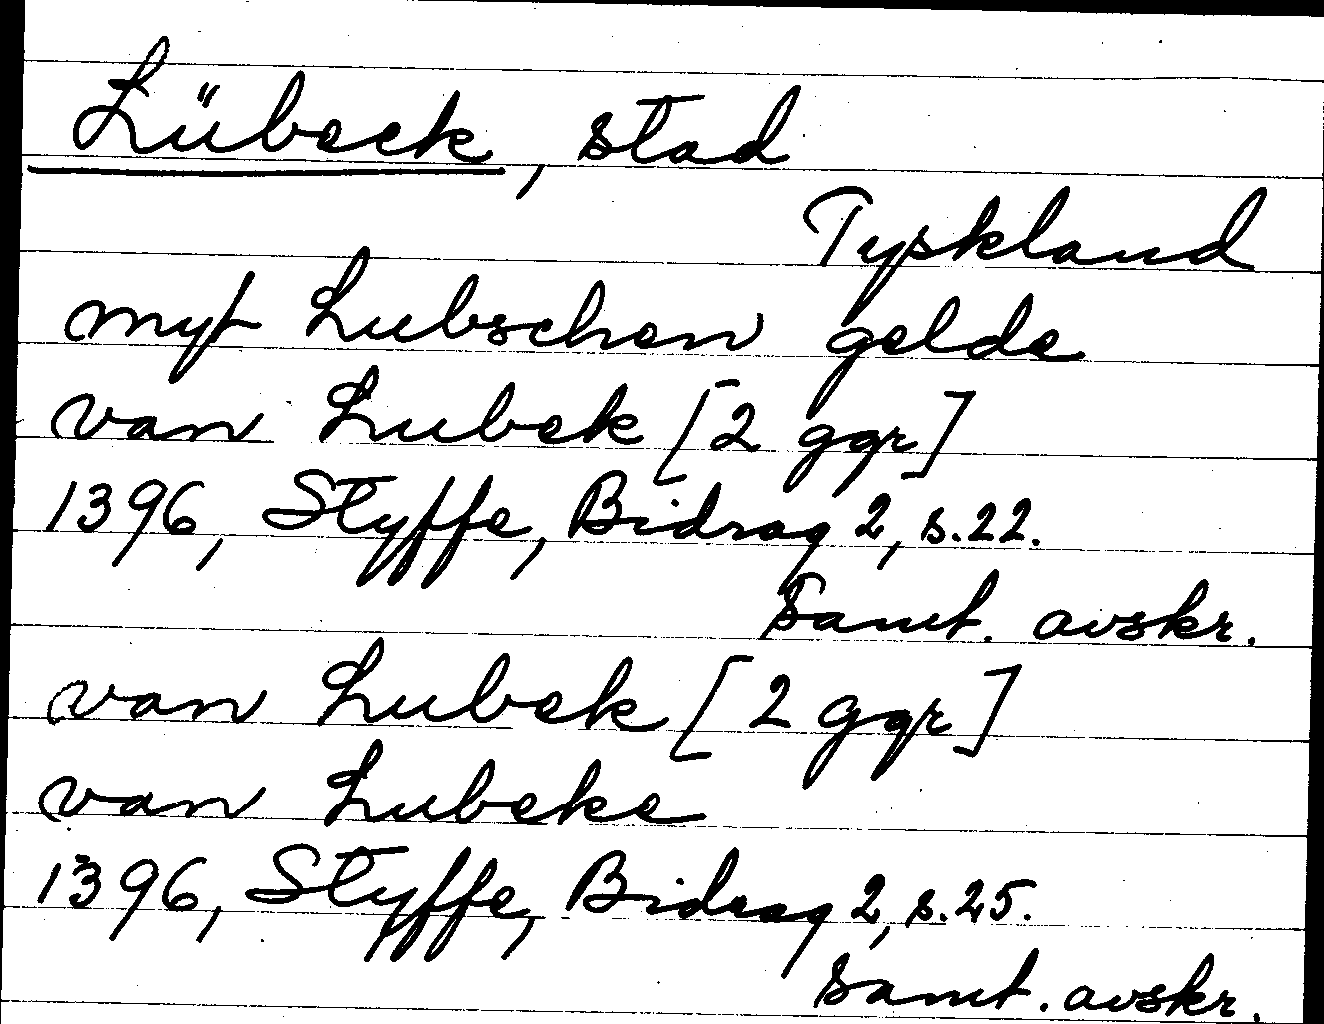 Lübeck, stad
Tyskland
myt Lubschen gelde
van Lubek [2 ggr]
1396, Styffe, Bidrag 2, s.22.
Samt. avskr.
van Lubek [2 ggr]
van Lubeke
1396, Styffe, Bidrag 2, s.25.
Samt. avskr.